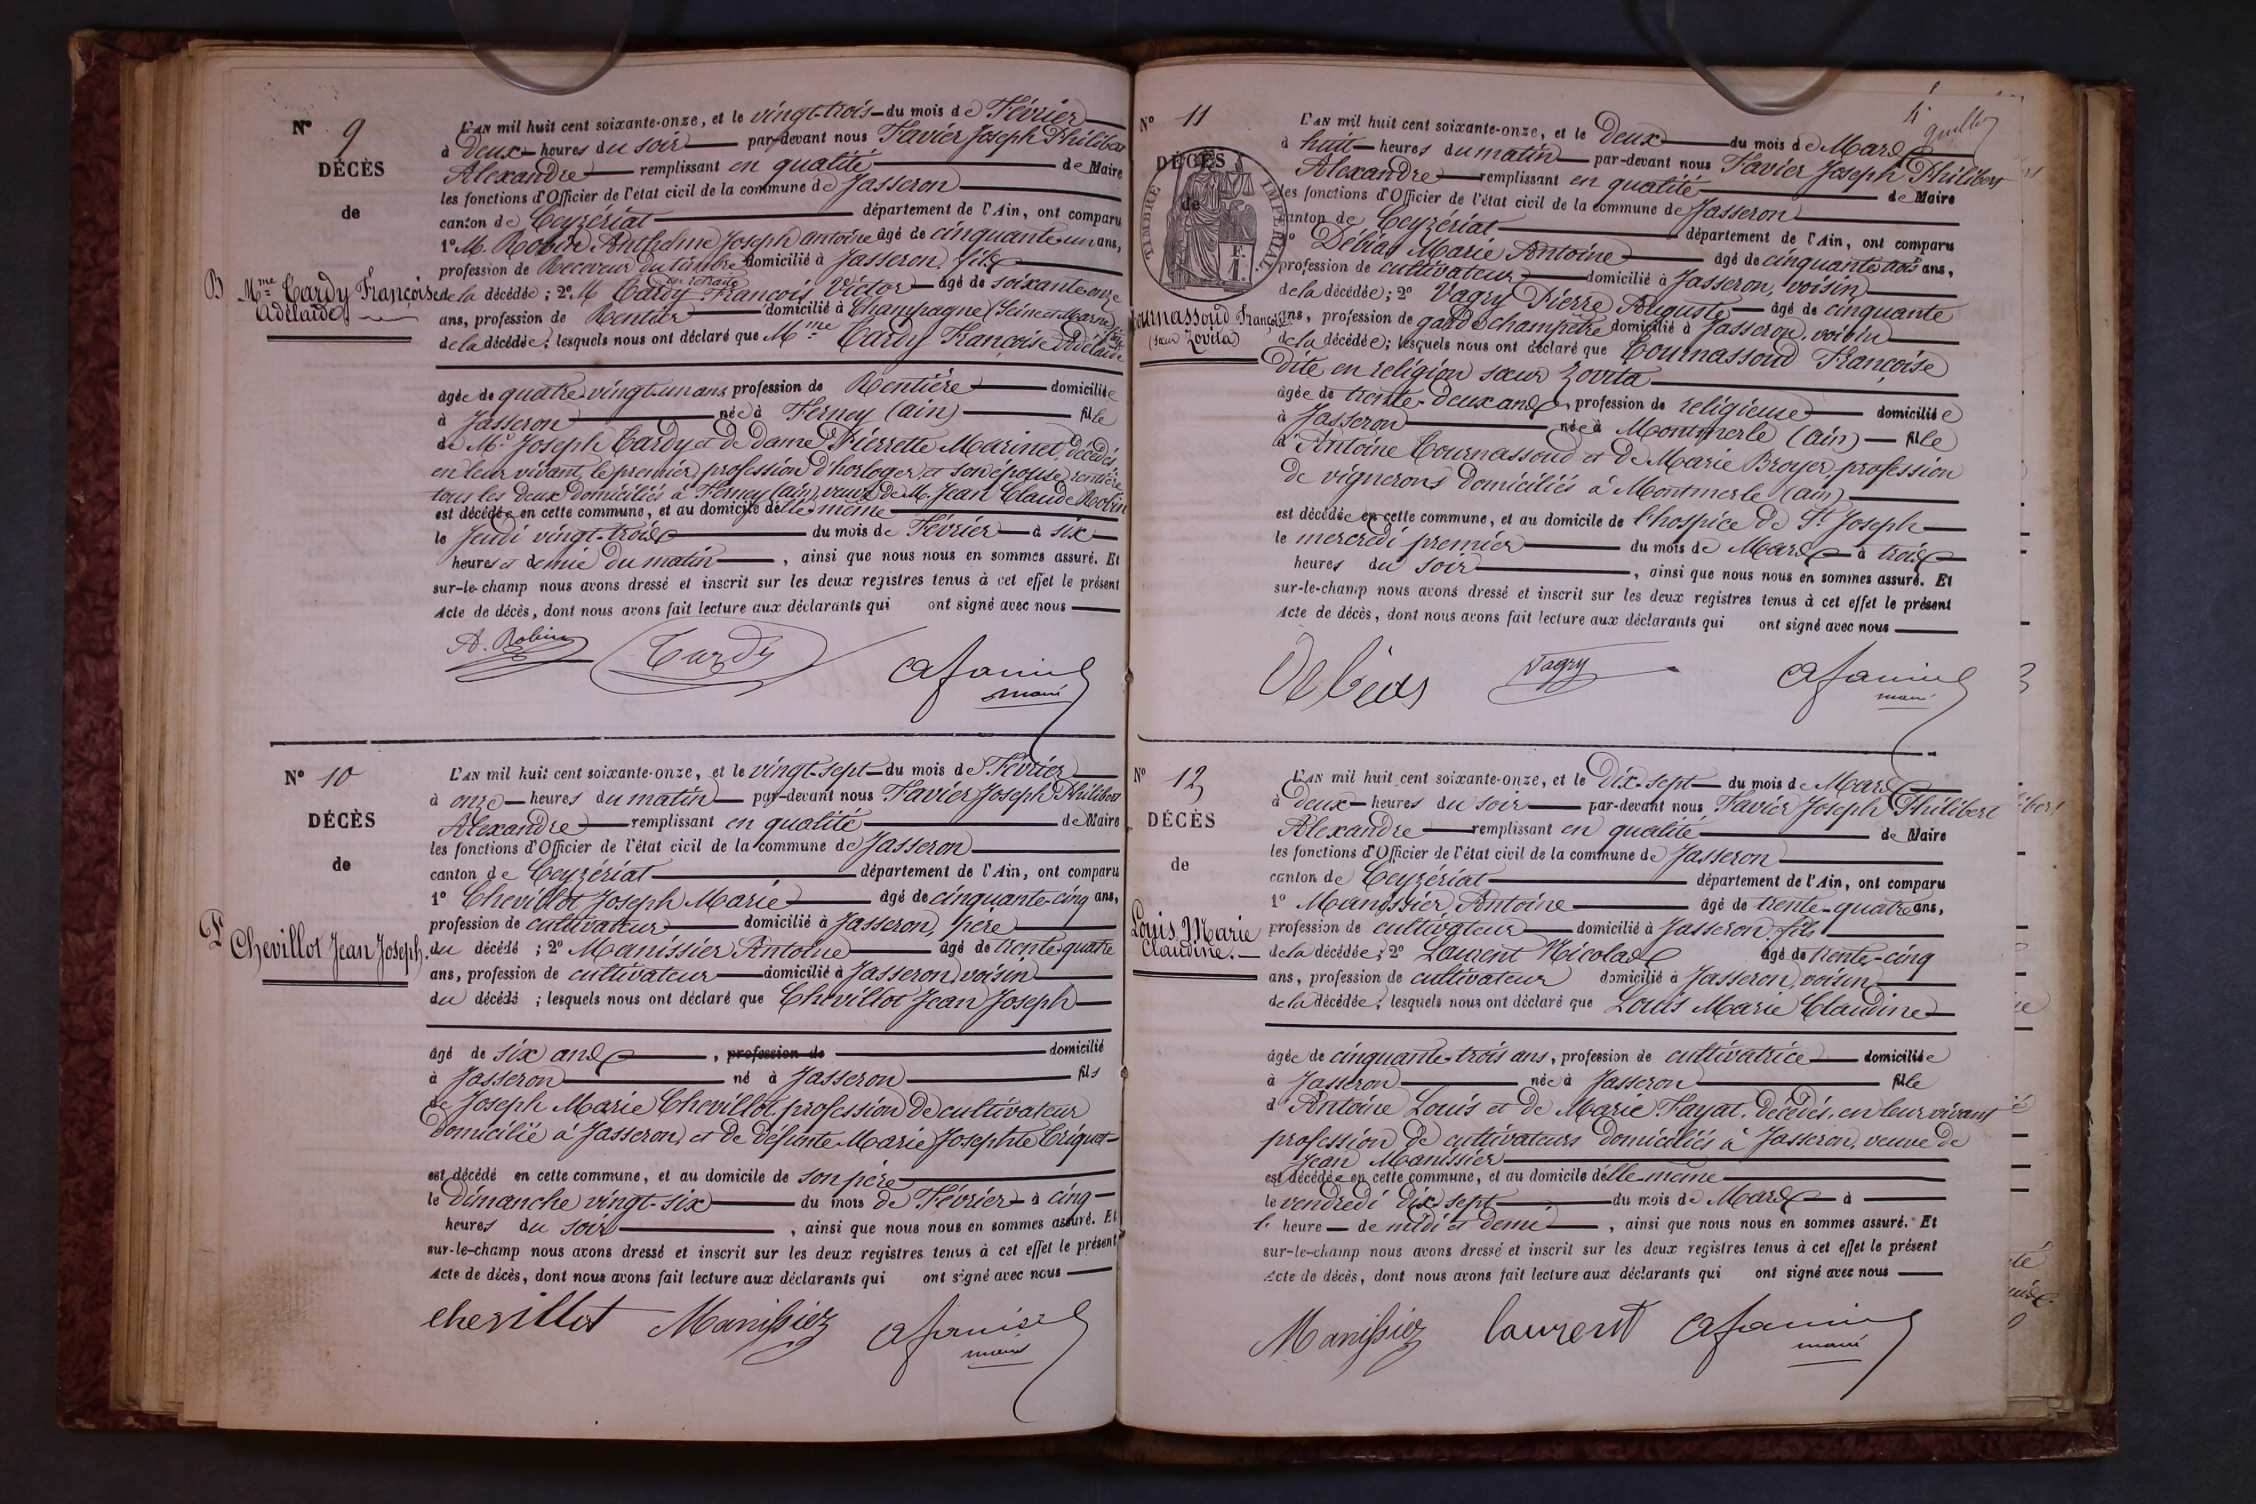 N° 9
DÉCÈS
de
B Mme Tardy Françoise
Adélaïde
L'AN mil huit cent soixante-onze, et le vingt-trois du mois de Février
à deux heures du soir par-devant nous Favier Joseph Philibert
Alexandre remplissant en qualité de Maire
les fonctions d'Officier de l'état civil de la commune de Jasseron
canton de Ceyzériat département de l'Ain, ont comparu
1° M. Robin Anthelme Joseph antoine âgé de cinquante un ans,
profession de Receveur du timbre domicilié à Jasseron, fils
en retraite
de la décédée; 2° M Tardy François Victor âgé de soixante onze
ans, profession de Rentier domicilié à Champagne (Seine et Marne)
de la décédée; lesquels nous ont déclaré que Mme Tardy Françoise Adélaïde
âgée de quatre-vingt-un ans profession de Rentière domiciliée
à Jasseron née à Ferney (ain) fille
de Mr Joseph Tardy et de dame Pierrette Marinet, décédés,
en leur vivant, le premier profession d'horloger et son épouse rentière
tous les deux domiciliés à Ferney (ain), veuve de M. Jean Claude Robin
est décédée en cette commune, et au domicile d'elle même
le Jeudi vingt-trois du mois de Février à six
heures et demie du matin, ainsi que nous nous en sommes assuré. Et
sur-le-champ nous avons dressé et inscrit sur les deux registres tenus à cet effet le présent
Acte de décès, dont nous avons fait lecture aux déclarants qui ont signé avec nous
A. Robin Tardy A favier
maire
N° 10
DÉCÈS
de
Chevillot Jean Joseph.
L'AN mil huit cent soixante-onze, et le vingt-sept du mois de Février
à onze heures du matin par-devant nous Favier Joseph Philibert
Alexandre remplissant en qualité de Maire
les fonctions d'Officier de l'état civil de la commune de Jasseron
canton de Ceyzériat département de l'Ain, ont comparu
1° Chevillot Joseph Marie âgé de cinquante-cinq ans,
profession de cultivateur domicilié à Jasseron, père
du décédé; 2° Manissier Antoine âgé de trente-quatre
ans, profession de cultivateur domicilié à Jasseron, voisin
du décédé; lesquels nous ont déclaré que Chevillot Jean Joseph
âgé de six ans, profession de domicilié
à Jasseron né à Jasseron fils
de Joseph Marie Chevillot, profession de cultivateur
domicilié à Jasseron, et de défunte Marie Josephte Criquet
est décédé en cette commune, et au domicile de son père
le dimanche vingt-six du mois de Février à cinq
heures du soir, ainsi que nous nous en sommes assuré. Et
sur-le-champ nous avons dressé et inscrit sur les deux registres tenus à cet effet le présent
Acte de décès, dont nous avons fait lecture aux déclarants qui ont signé avec nous
chevillot Manissier A favier
maire
N° 11
DÉCÈS
de
TIMBRE IMPÉRIAL
Tournassoud Françoise
(sœur Zovita)
L'AN mil huit cent soixante-onze, et le deux du mois de Mars
à huit heures du matin par-devant nous Favier Joseph Philibert
Alexandre remplissant en qualité de Maire
les fonctions d'Officier de l'état civil de la commune de Jasseron
canton de Ceyzériat département de l'Ain, ont comparu
1° Débias Marie Antoine âgé de cinquante trois ans,
profession de cultivateur domicilié à Jasseron, voisin
de la décédée; 2° Vagry Pierre Auguste âgé de cinquante
ans, profession de garde champêtre domicilié à Jasseron, voisin
de la décédée; lesquels nous ont déclaré que Tournassoud Françoise
dite en religion sœur Zovita
âgée de trente-deux ans, profession de religieuse domiciliée
à Jasseron née à Montmerle (ain) fille
d'Antoine Tournassoud et de Marie Broyer, profession
de vignerons domiciliés à Montmerle (ain)
est décédée en cette commune, et au domicile de l'hospice de St Joseph
le mercredi premier du mois de Mars à trois
heures du soir, ainsi que nous nous en sommes assuré. Et
sur-le-champ nous avons dressé et inscrit sur les deux registres tenus à cet effet le présent
Acte de décès, dont nous avons fait lecture aux déclarants qui ont signé avec nous
Debias Vagry A favier
maire
N° 12
DÉCÈS
de
Louis Marie
Claudine.
L'AN mil huit cent soixante-onze, et le Dix-sept du mois de Mars
à deux heures du soir par-devant nous Favier Joseph Philibert
Alexandre remplissant en qualité de Maire
les fonctions d'Officier de l'état civil de la commune de Jasseron
canton de Ceyzériat département de l'Ain, ont comparu
1° Manissier Antoine âgé de trente-quatre ans,
profession de cultivateur domicilié à Jasseron, fils
de la décédée; 2° Laurent Nicolas âgé de trente-cinq
ans, profession de cultivateur domicilié à Jasseron, voisin
de la décédée; lesquels nous ont déclaré que Louis Marie Claudine
âgée de cinquante-trois ans, profession de cultivatrice domiciliée
à Jasseron née à Jasseron fille
d'Antoine Louis et de Marie Fayat, décédés, en leur vivant
profession de cultivateurs domiciliés à Jasseron, veuve de
Jean Manissier
est décédée en cette commune, et au domicile d'elle même
le vendredi dix-sept du mois de Mars à
l' heure de midi et demi, ainsi que nous nous en sommes assuré. Et
sur-le-champ nous avons dressé et inscrit sur les deux registres tenus à cet effet le présent
Acte de décès, dont nous avons fait lecture aux déclarants qui ont signé avec nous
Manissier laurent A favier
maire